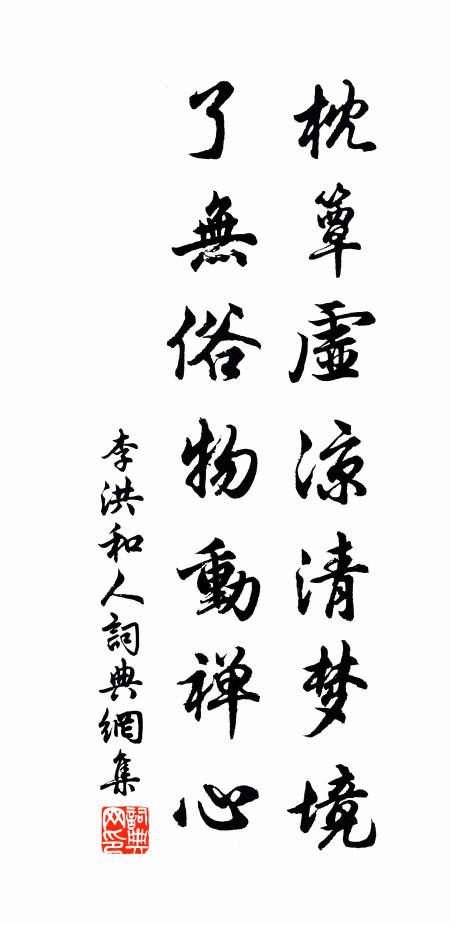 枕簟虛涼清梦境
了無俗物動禅心
李洪和人詞典網集
詞典
网印